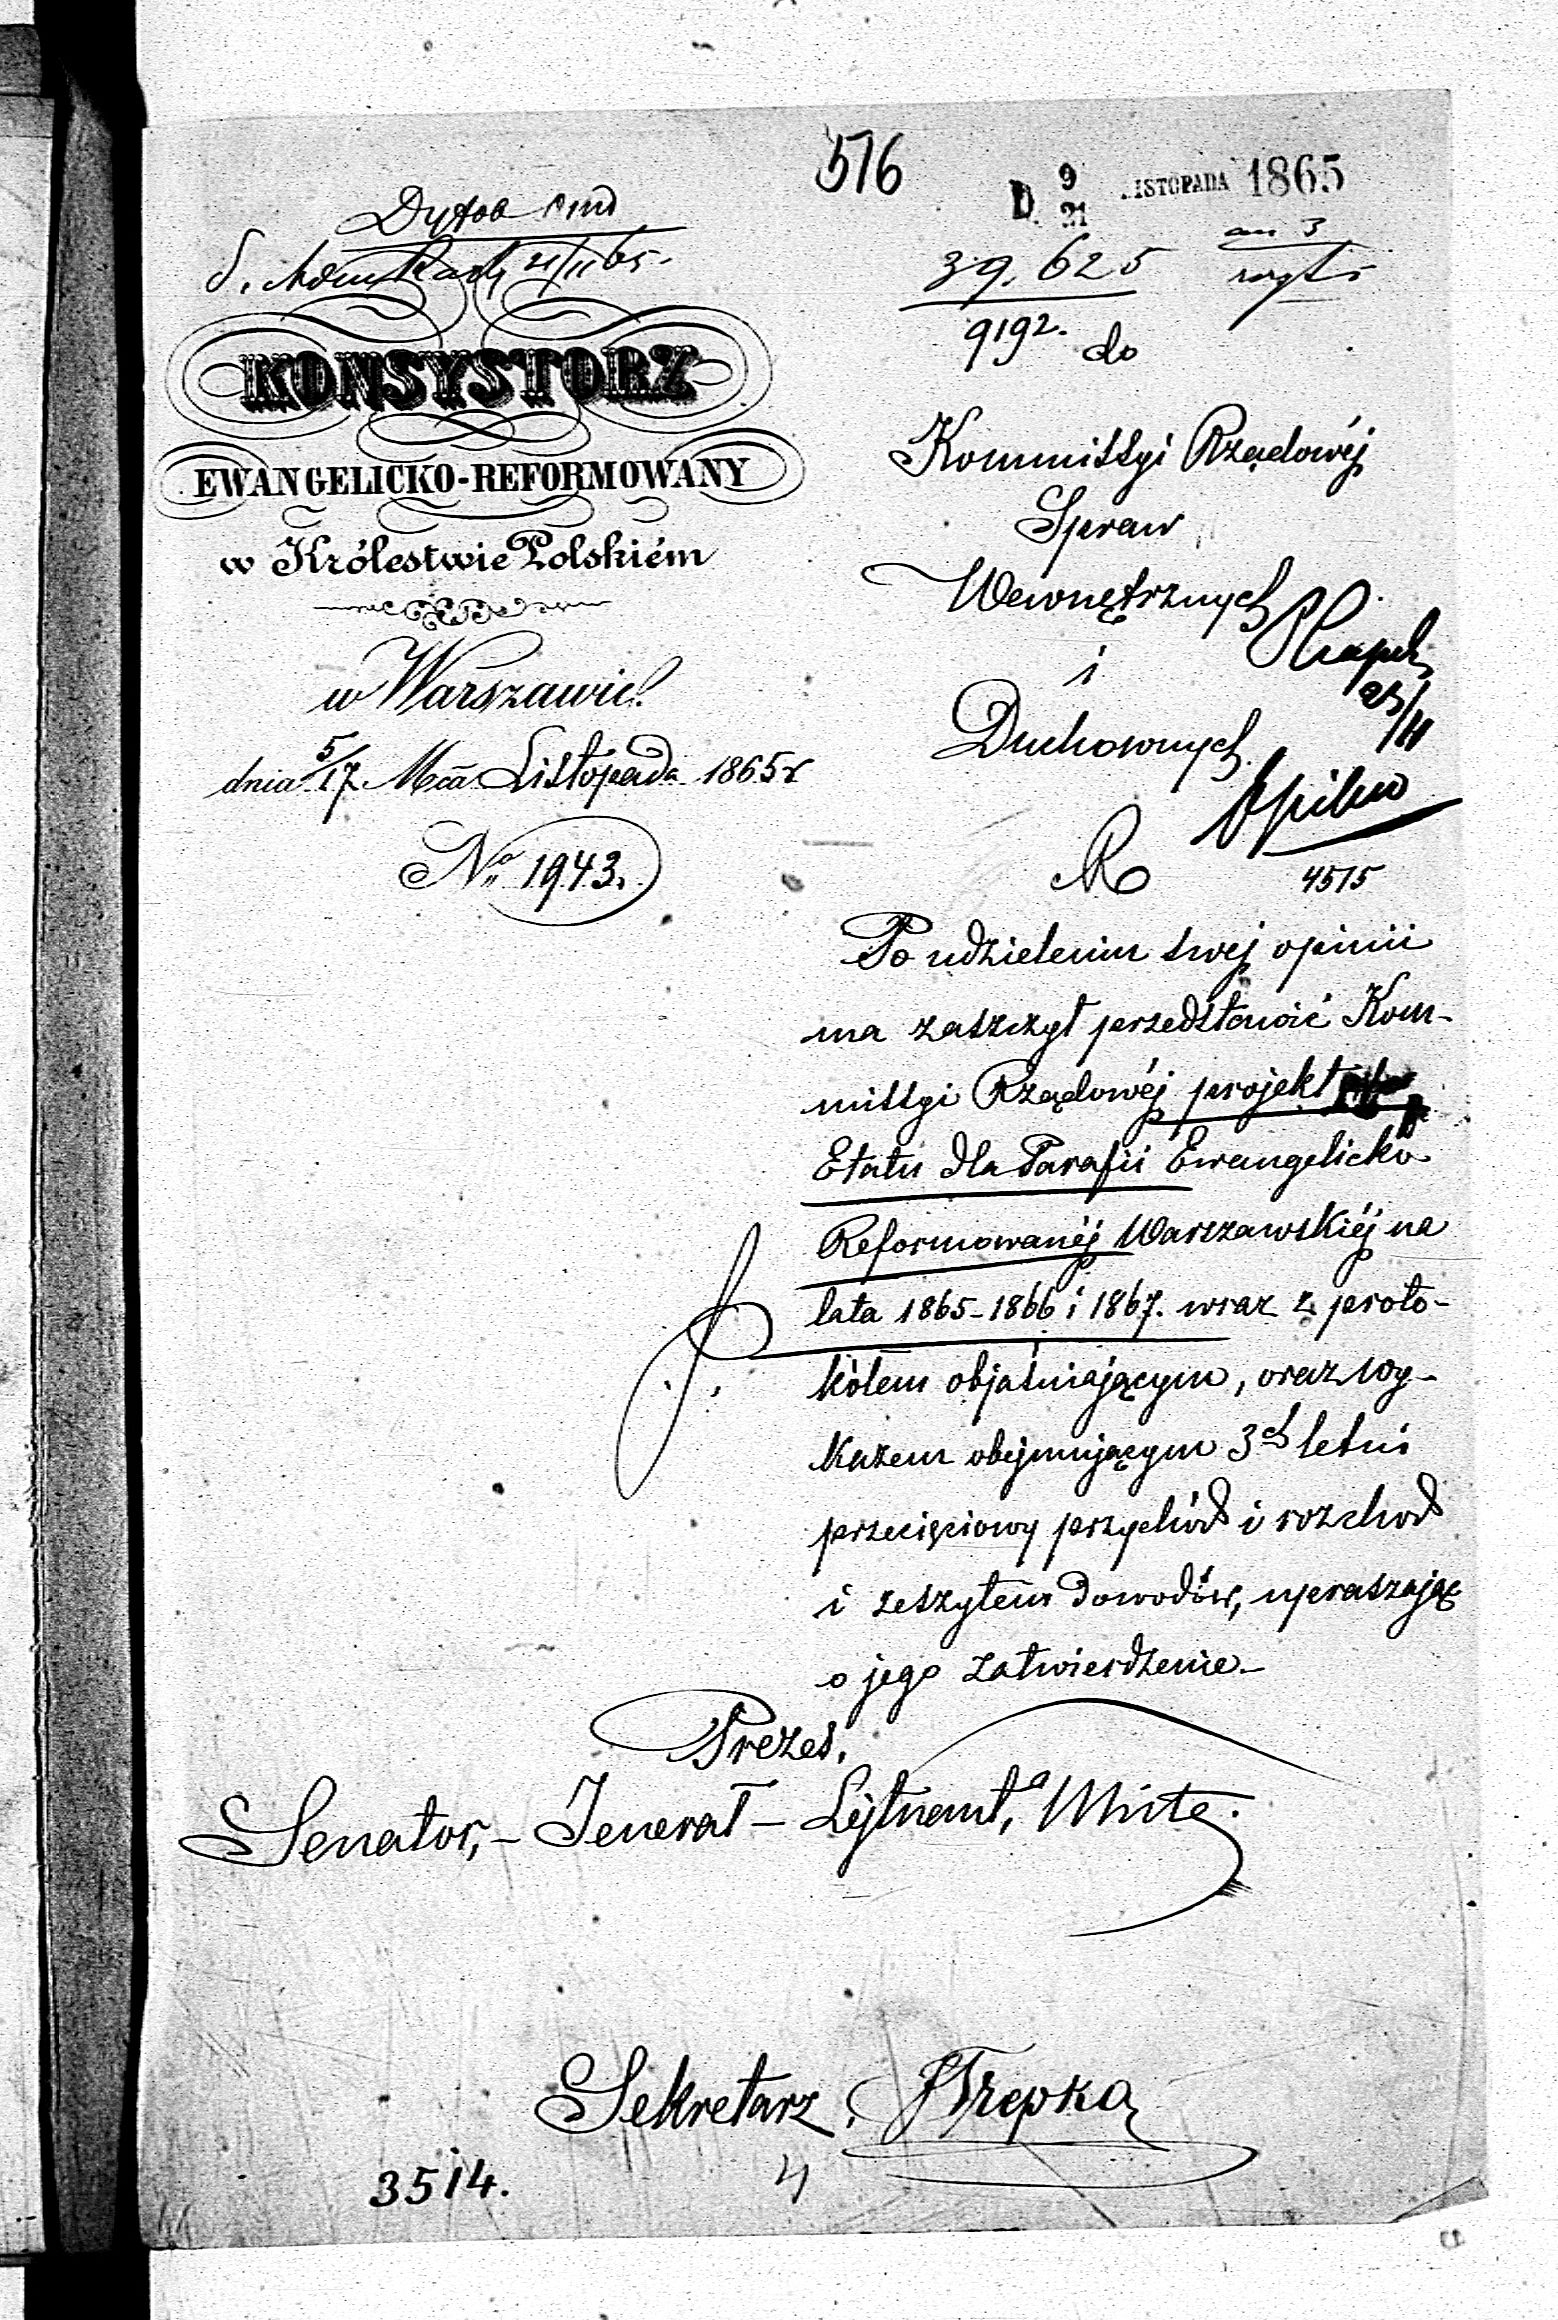 576
D. 9/21 LISTOPADA 1865
39,625
9192.
KONSYSTORZ
EWANGELICKO-REFORMOWANY
w Królestwie Polskiém
w Warszawie.
dnia 5/17 Mca Listopada 1865 r
No 1943.
do
Kommissyi Rządowéj
Spraw
Wewnętrznych
i
Duchownych
23/11
4515
Po udzieleniu swej opinii
ma zaszczyt przedstawić Kom-
missyi Rządowéj projekt
Etatu dla Parafii Ewangelicko
Reformowanéj Warszawskiéj na
lata 1865-1866 i 1867. wraz z proto-
kółem objaśniającym, oraz wy-
kazem obejmującym 3ch letni
przecięciowy przychód i rozchod
i zeszytem dowodów, upraszając
o jego zatwierdzenie.-
Prezes,
Senator, - Jenerał - Lejtnant, White.
Sekretarz, Trepka
3514.